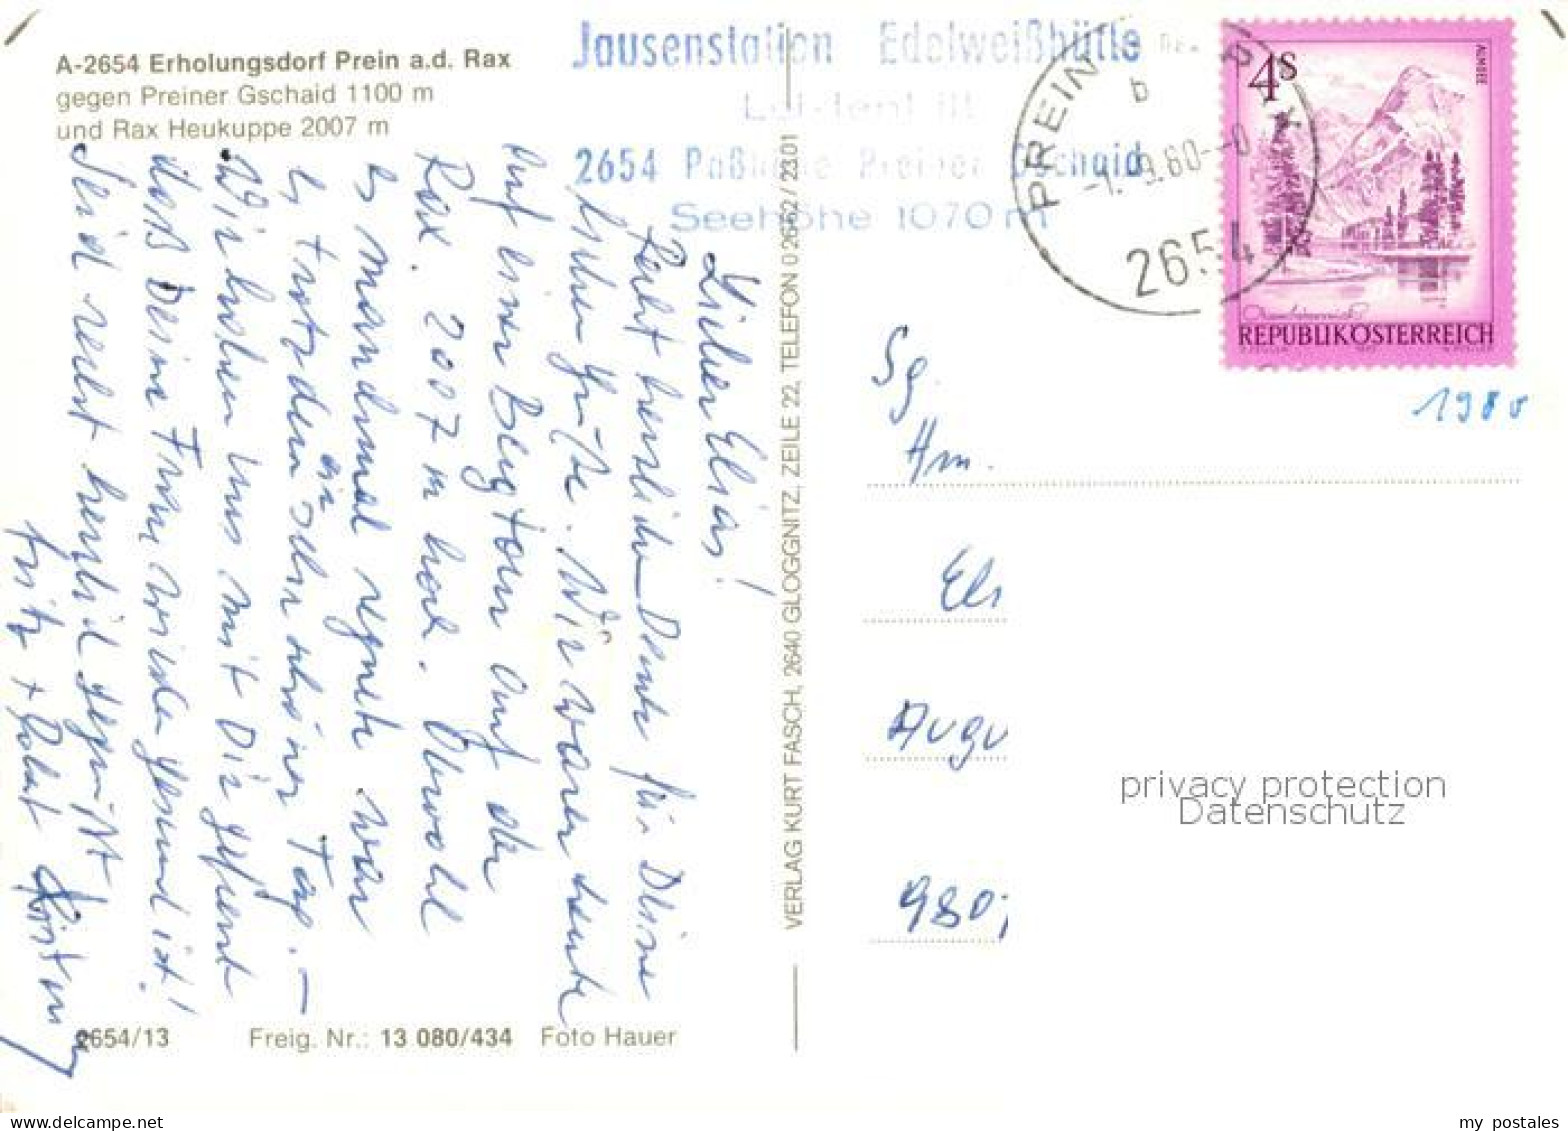 A-2654 Erholungsdorf Prein a.d. Rax
gegen Preiner Gschaid 1100 m
und Rax Heukuppe 2007 m
Jausenstation Edelweißhütte
2654 Paßhöhe Preiner Gschaid
Seehöhe 1070 m
PREIN
b
-1.-9.80--0
2654
4S
ALMSEE
REPUBLIK ÖSTERREICH
1980
Lieber Elias!
Recht herzlichen Dank für Deine
lieben Grüße. Wir waren heute
auf einer Bergtour auf der
Rax. 2007 m hoch. Obwohl
es manchmal regnete war
es trotzdem ein sehr schöner Tag. –
Wir haben uns mit Dir gefreut
daß Deine Frau wieder gesund ist!
Seid recht herzlich gegrüßt
Fritz +
Sg.
Hrn.
Eli
Augu
980
VERLAG KURT FASCH, 2640 GLOGGNITZ, ZEILE 22, TELEFON 02662/2301
2654/13 Freig. Nr.: 13 080/434 Foto Hauer
privacy protection
Datenschutz
my postales